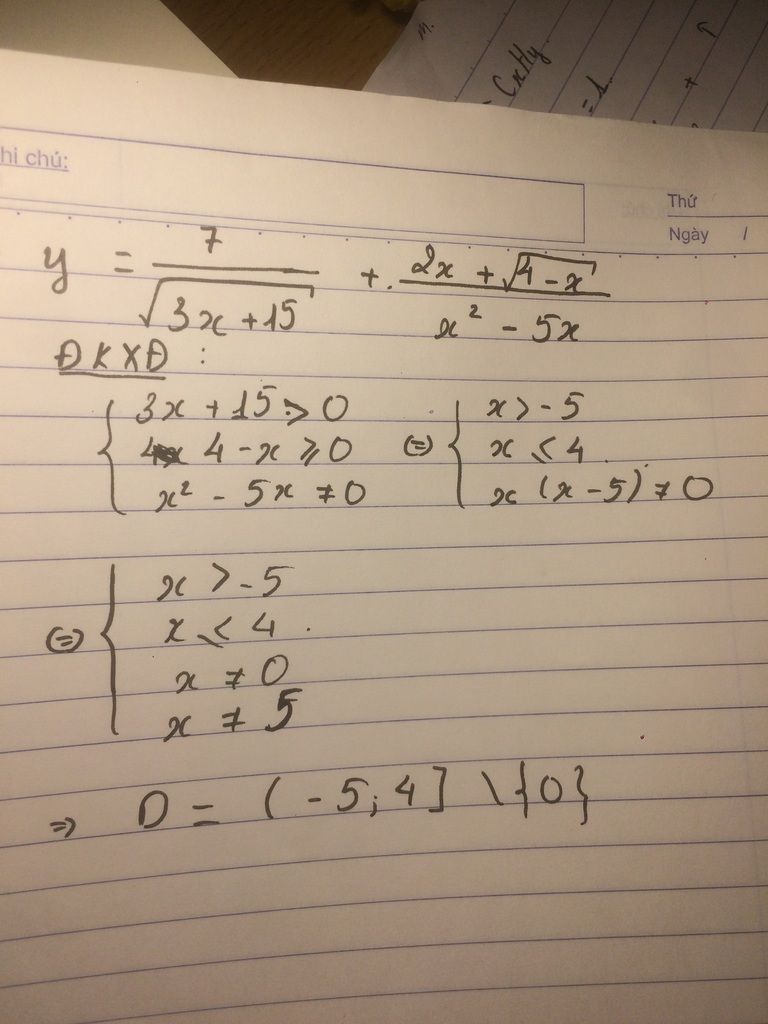 m.
CxHy
=1
hi chú:
Thứ
Ngày /
y = 7/√(3x+15) + (2x + √(4-x))/(x² - 5x)
ĐKXĐ :
{ 3x + 15 > 0 (=) { x > -5
4 - x ⩾ 0 x ⩽ 4
x² - 5x ≠ 0 x (x - 5) ≠ 0
(=) { x > -5
x ⩽ 4
x ≠ 0
x ≠ 5
=> D = (-5; 4] \ {0}